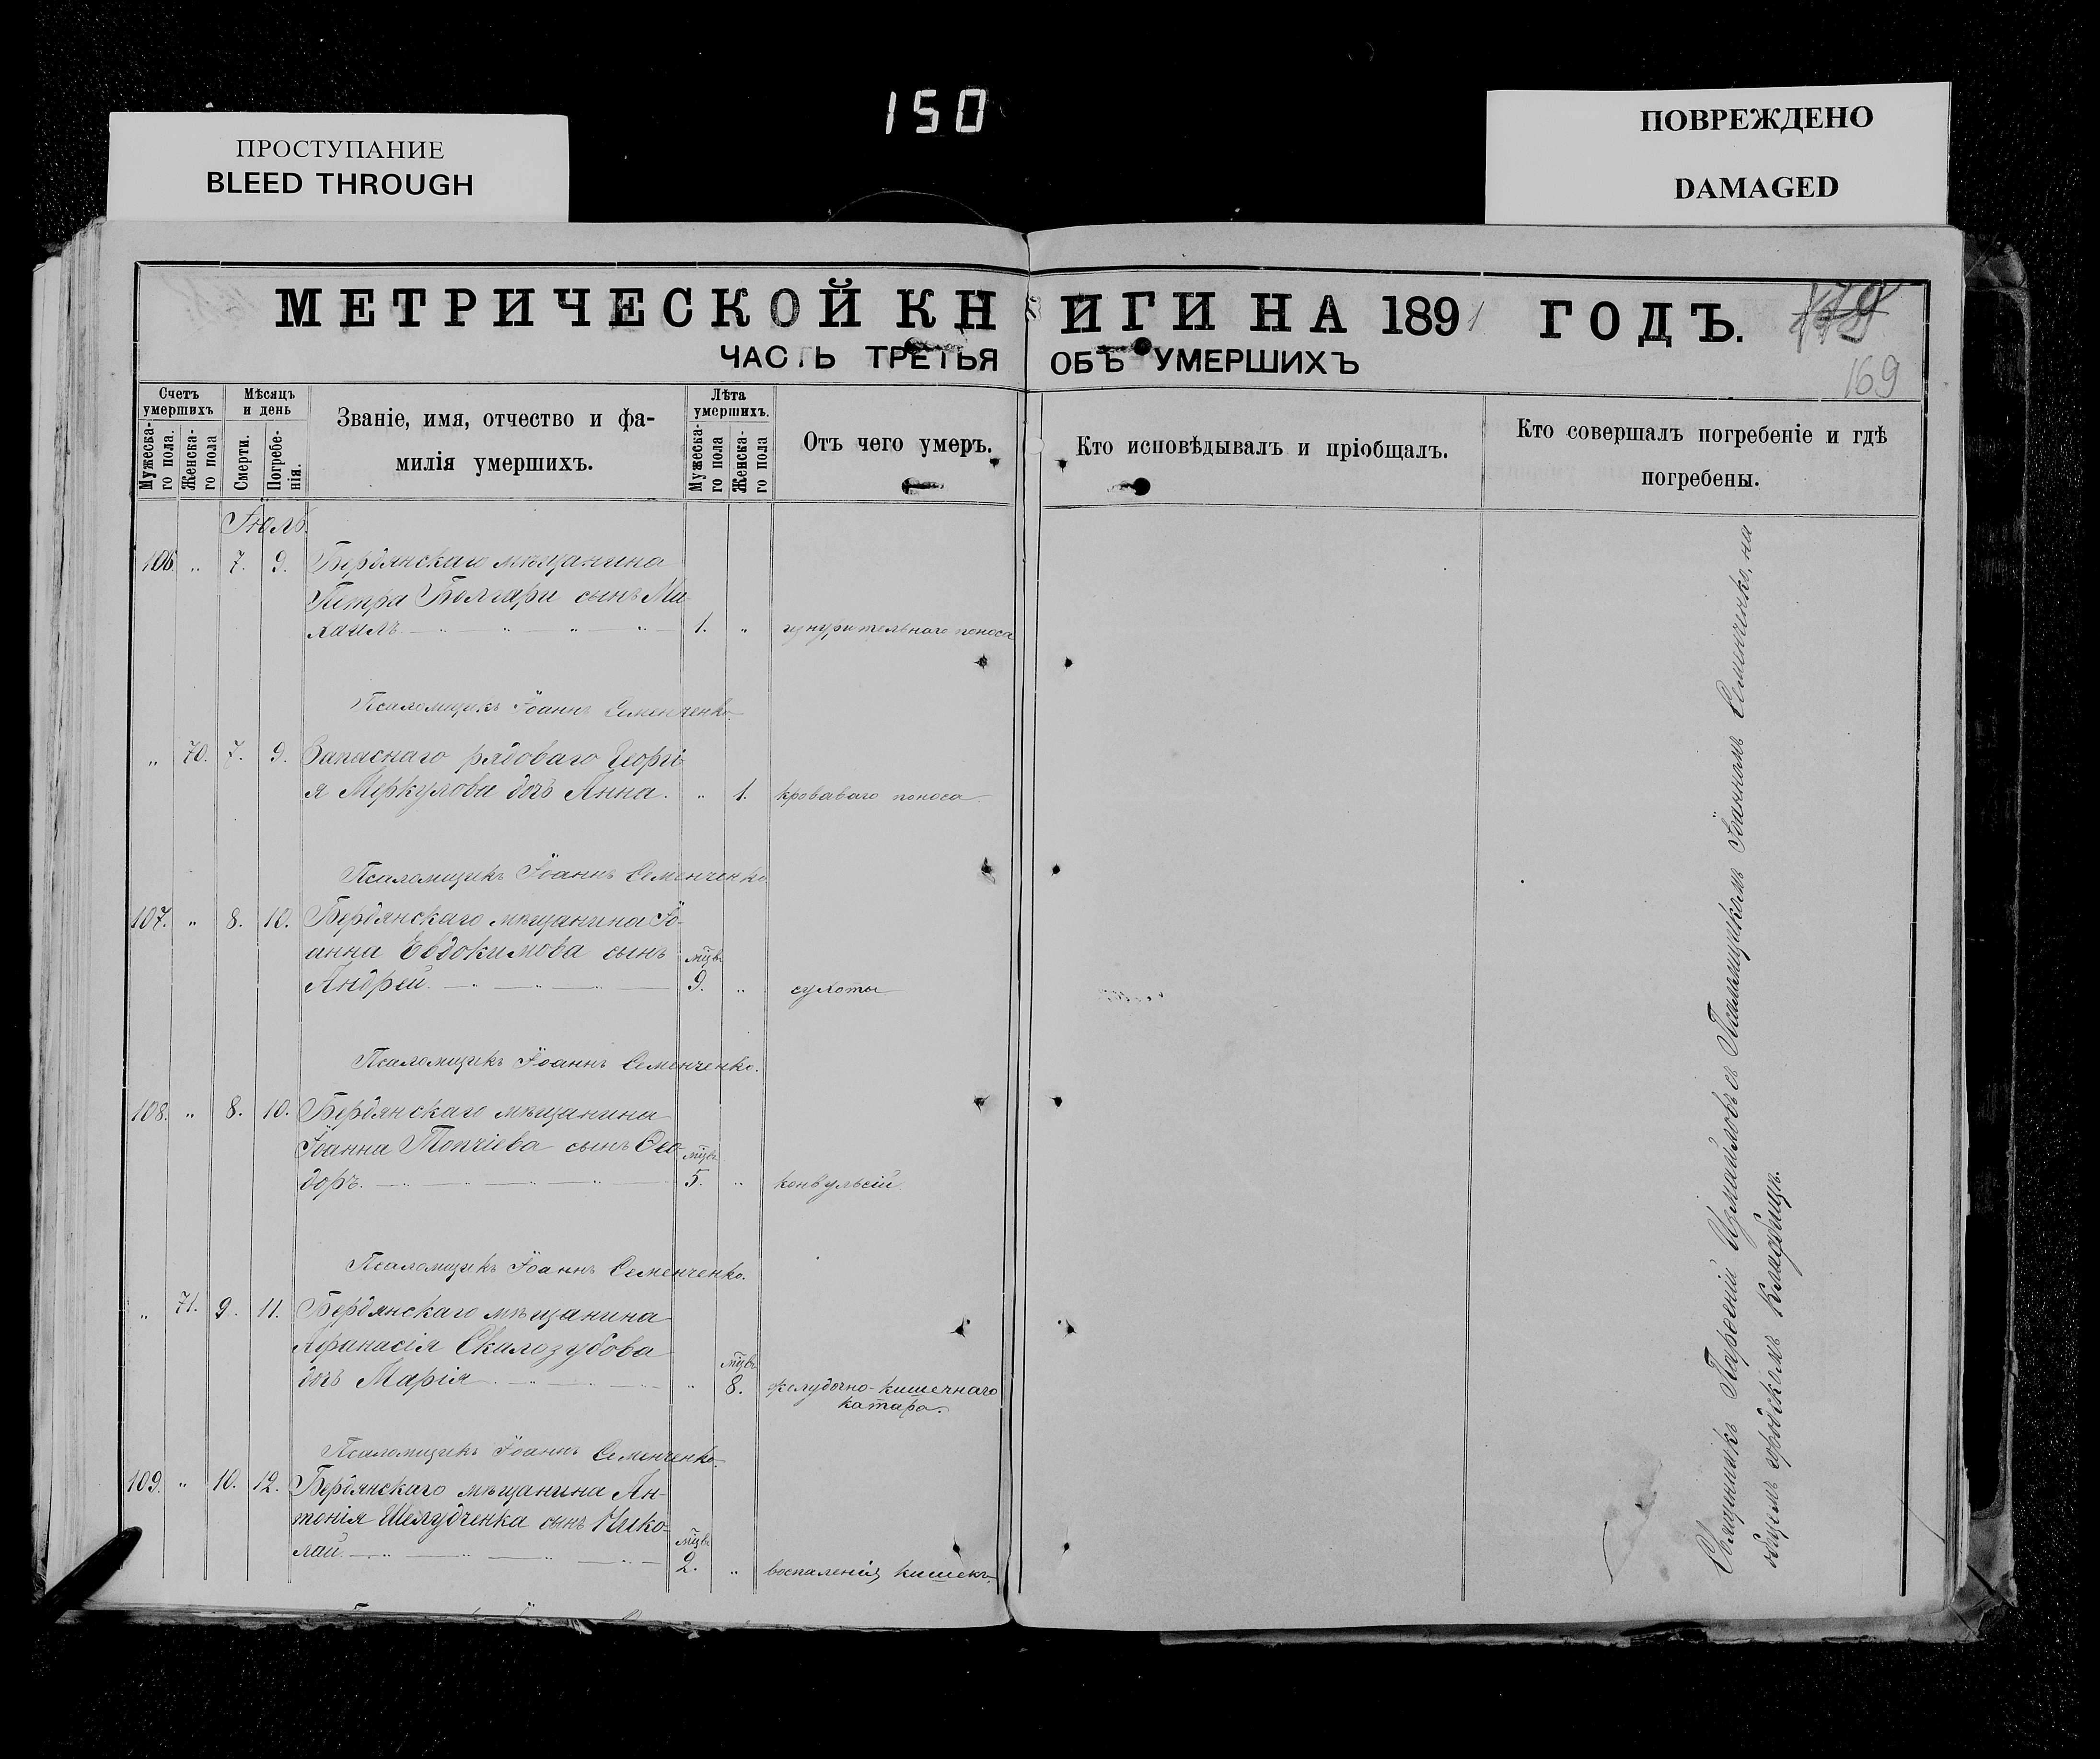 150
ПРОСТУПАНИЕ
BLEED THROUGH
ПОВРЕЖДЕНО
DAMAGED
МЕТРИЧЕСКОЙ КНИГИ НА 1891 ГОДЪ.
169
ЧАСТЬ ТРЕТЬЯ ОБЪ УМЕРШИХЪ
Счетъ умершихъ
Мужеска-го пола.
Женска-го пола
Мѣсяцъ и день
Смерти.
Погребе-нія.
Званіе, имя, отчество и фа-
милія умершихъ.
Лѣта умершихъ.
Мужеска-го пола
Женска-го пола
Отъ чего умеръ.
Кто исповѣдывалъ и пріобщалъ.
Кто совершалъ погребеніе и гдѣ
погребены.
Іюль.
106. „ 7. 9. Бердянскаго мѣщанина
Петра Болгари сынъ Ми
хаилъ 1. „ изнурительнаго поноса
Псаломщикъ Іоаннъ Семенченко.
„ 70. 7. 9. Запаснаго рядоваго Георгі
я Меркулова дочь Анна. „ 1. кроваваго поноса
Псаломщикъ Іоаннъ Семенченко.
107. „ 8. 10. Бердянскаго мѣщанина Іо-
анна Евдокимова сынъ мѣц.
Андрей. 9. „ сухоты
Псаломщикъ Іоаннъ Семенченко.
108. „ 8. 10. Бердянскаго мѣщанина
Іоанна Топчіева сынъ Ѳео мѣц.
доръ. 5. „ конвульсій.
Псаломщикъ Іоаннъ Семенченко.
„ 71. 9. 11. Бердянскаго мѣщанина
Афанасія Скалозубова мѣц.
дочь Марія. „ 8. желудочно-кишечнаго
катара.
Псаломщикъ Іоаннъ Семенченко.
109. „ 10. 12. Бердянскаго мѣщанина Ан-
тонія Шелудченка сынъ Нико- мѣц.
лай 2. „ воспаленія кишекъ.
Священникъ Парѳеній Измаиловъ съ Псаломщикомъ Іоанномъ Семенченко, на
общемъ городскомъ кладбищѣ.